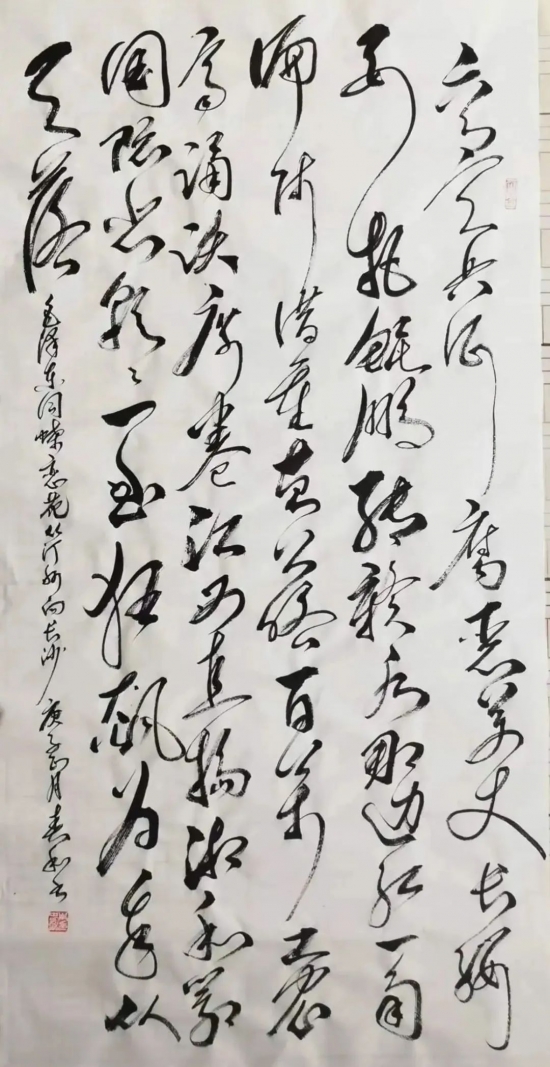 六月天兵征腐恶万丈长缨
要把鲲鹏缚赣水那边红一角
偏师借重黄公略百万工农
齐踊跃席卷江西直捣湘和鄂
国际悲歌〻一曲狂飙为我从
天落
毛泽东词蝶恋花从汀州向长沙 庚子正月 书